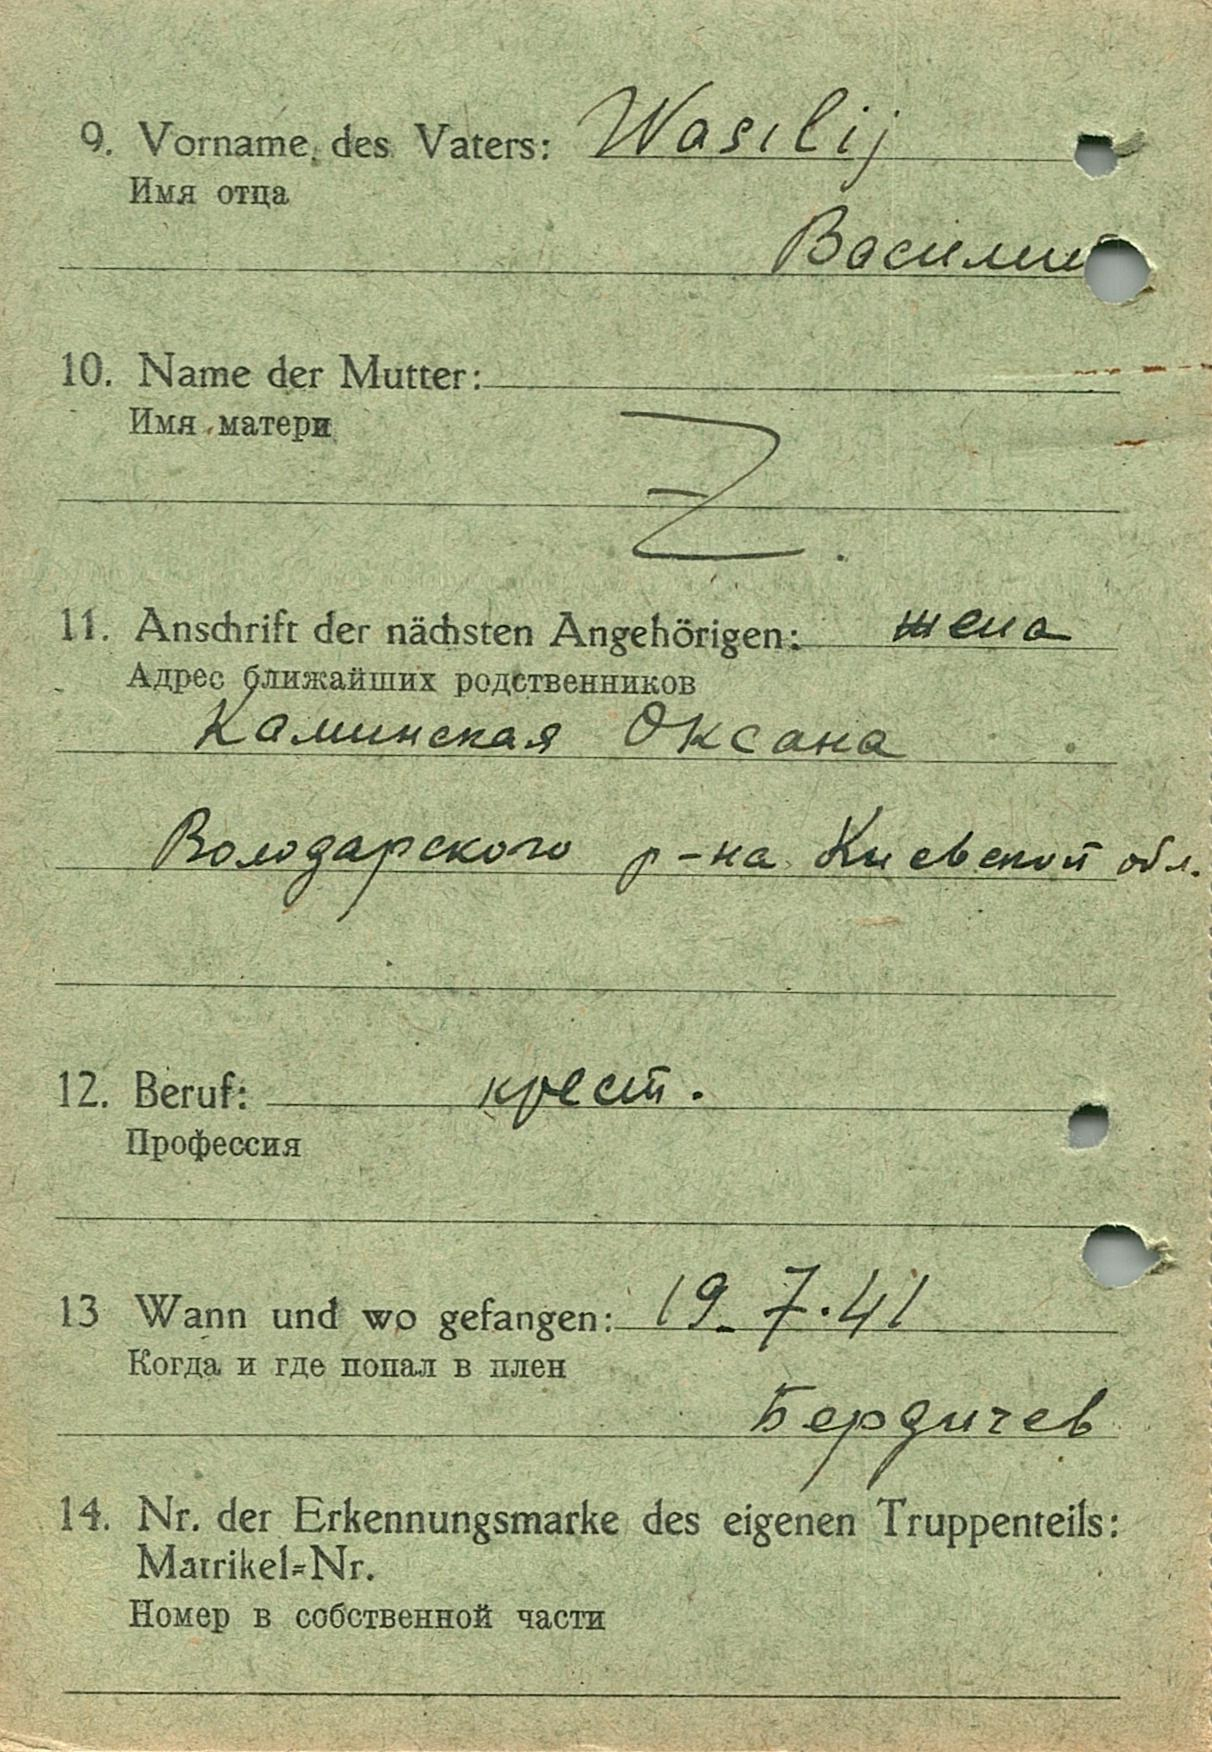 9. Vorname des Vaters: Wasilij
Имя отца
Василий
10. Name der Mutter:
Имя матери
Z.
11. Anschrift der nächsten Angehörigen: жена
Адрес ближайших родственников
Каминская Оксана
Володарского р-на Киевской обл.
12. Beruf: крест.
Профессия
13 Wann und wo gefangen: 19.7.41
Когда и где попал в плен
Бердичев
14. Nr. der Erkennungsmarke des eigenen Truppenteils:
Matrikel=Nr.
Номер в собственной части